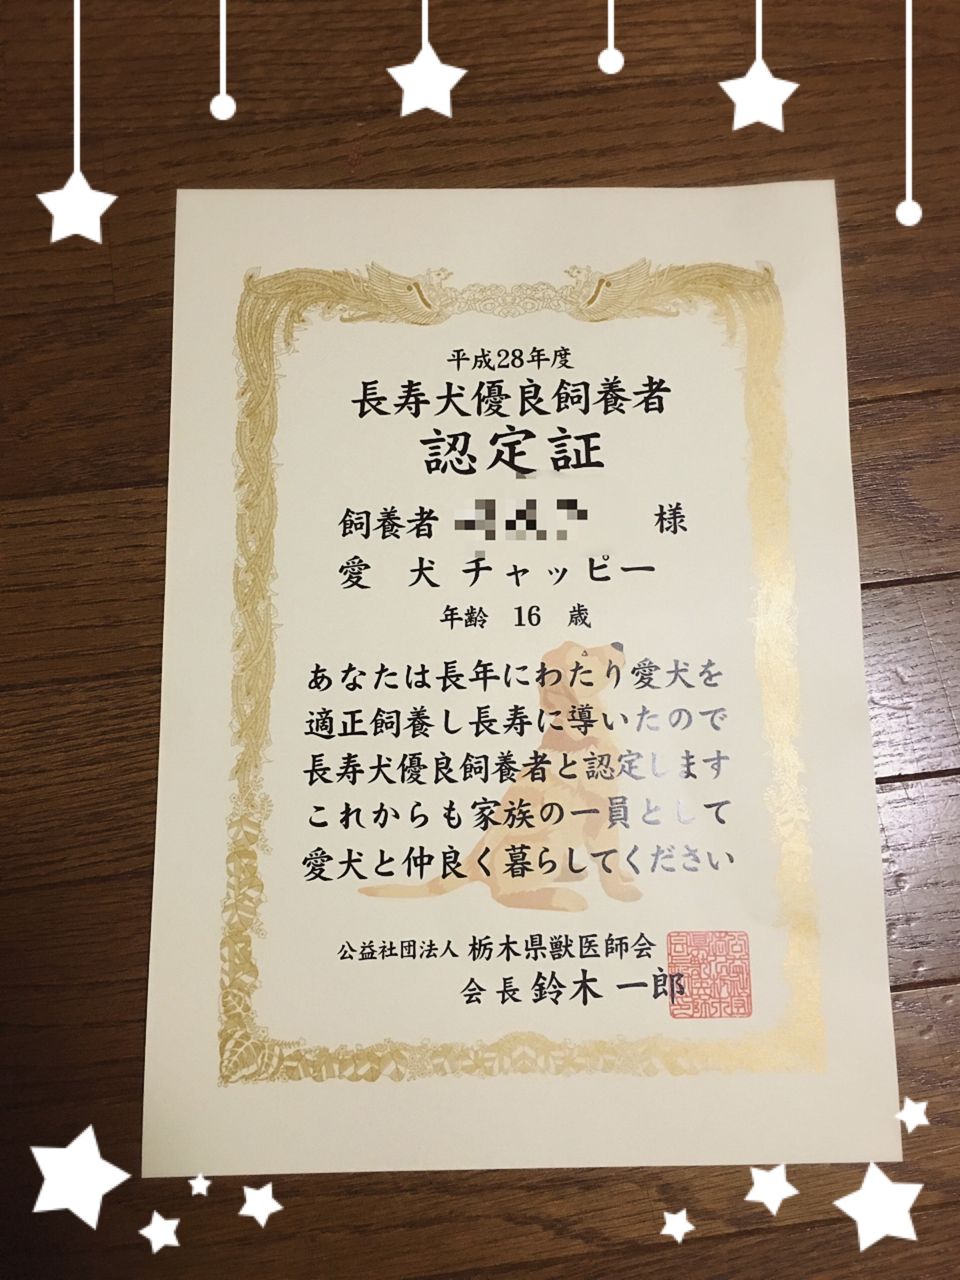 平成28年度
長寿犬優良飼養者
認定証
飼養者 様
愛 犬 チャッピー
年齢 16 歳
あなたは長年にわたり愛犬を
適正飼養し長寿に導いたので
長寿犬優良飼養者と認定します
これからも家族の一員として
愛犬と仲良く暮らしてください
公益社団法人 栃木県獣医師会
会長 鈴木 一郎